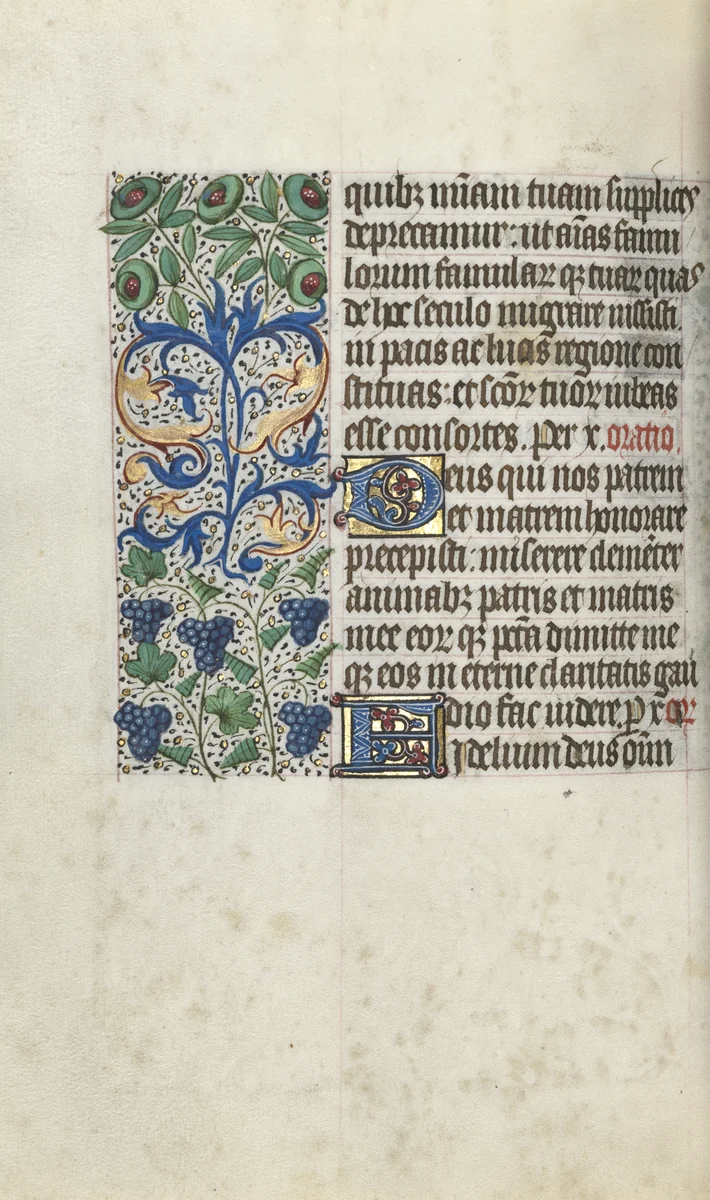 quibꝫ mīam tuam supplices
deprecamur: ut aīas famu
lorum famulaꝝ qꝫ tuaꝝ quas
de hoc seculo migrare iussisti
in pacis ac lucis regione con
stituas: et scōꝝ tuoꝝ iubeas
esse consortes. Per x. oratio.
Deus qui nos patrem
et matrem honorare
precepisti: miserere clemēter
animabꝫ patris et matris
mee eoꝝ qꝫ pctā dimitte me
qꝫ eos in eterne claritatis gau
dio fac uidere. ꝑ x̄ oꝝ
Fidelium deus oīm